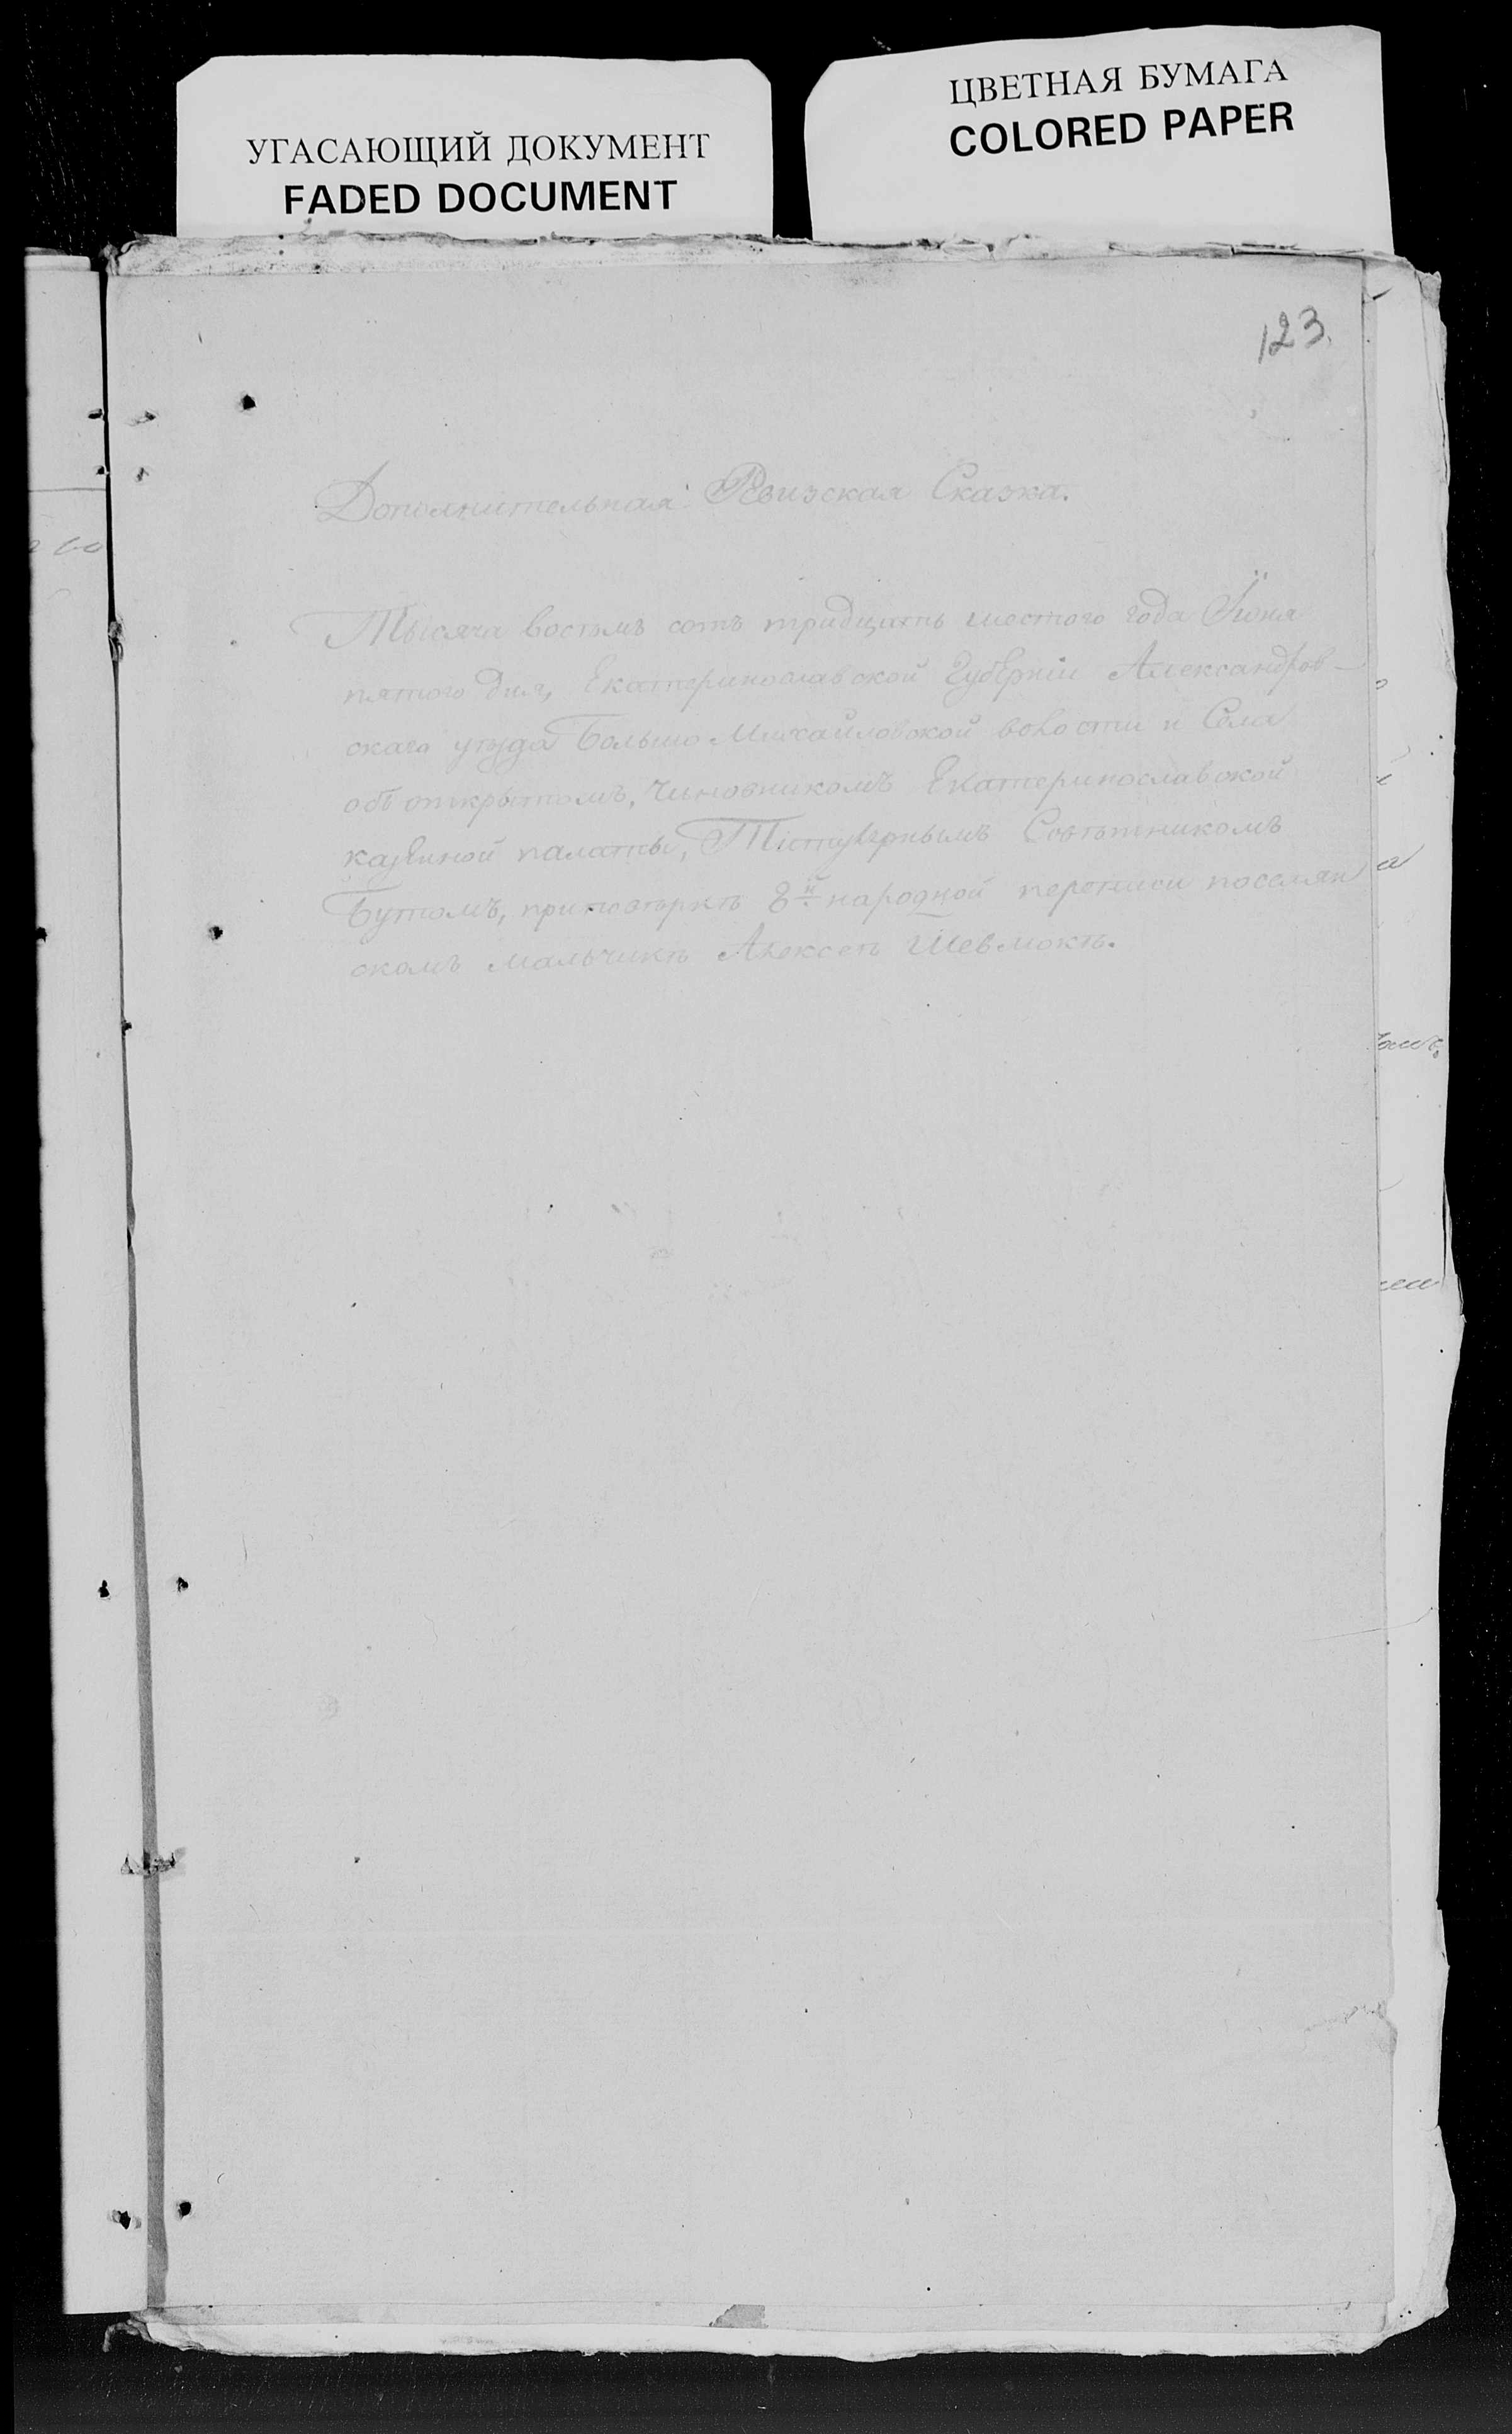 УГАСАЮЩИЙ ДОКУМЕНТ
FADED DOCUMENT
ЦВЕТНАЯ БУМАГА
COLORED PAPER
123.
Дополнительная Ревизская Сказка.
Тысяча восемь сотъ тридцать шестого года Іюня
пятого дня, Екатеринославской Губерніи Александров-
скаго уѣзда Больше Михайловской волости и Села
объ открытомъ, Чиновникомъ Екатеринославской
казенной палаты, Титулярнымъ Совѣтникомъ
Бутомъ, при повѣркѣ 8й народной переписи поселян
скомъ мальчикѣ Алексеѣ